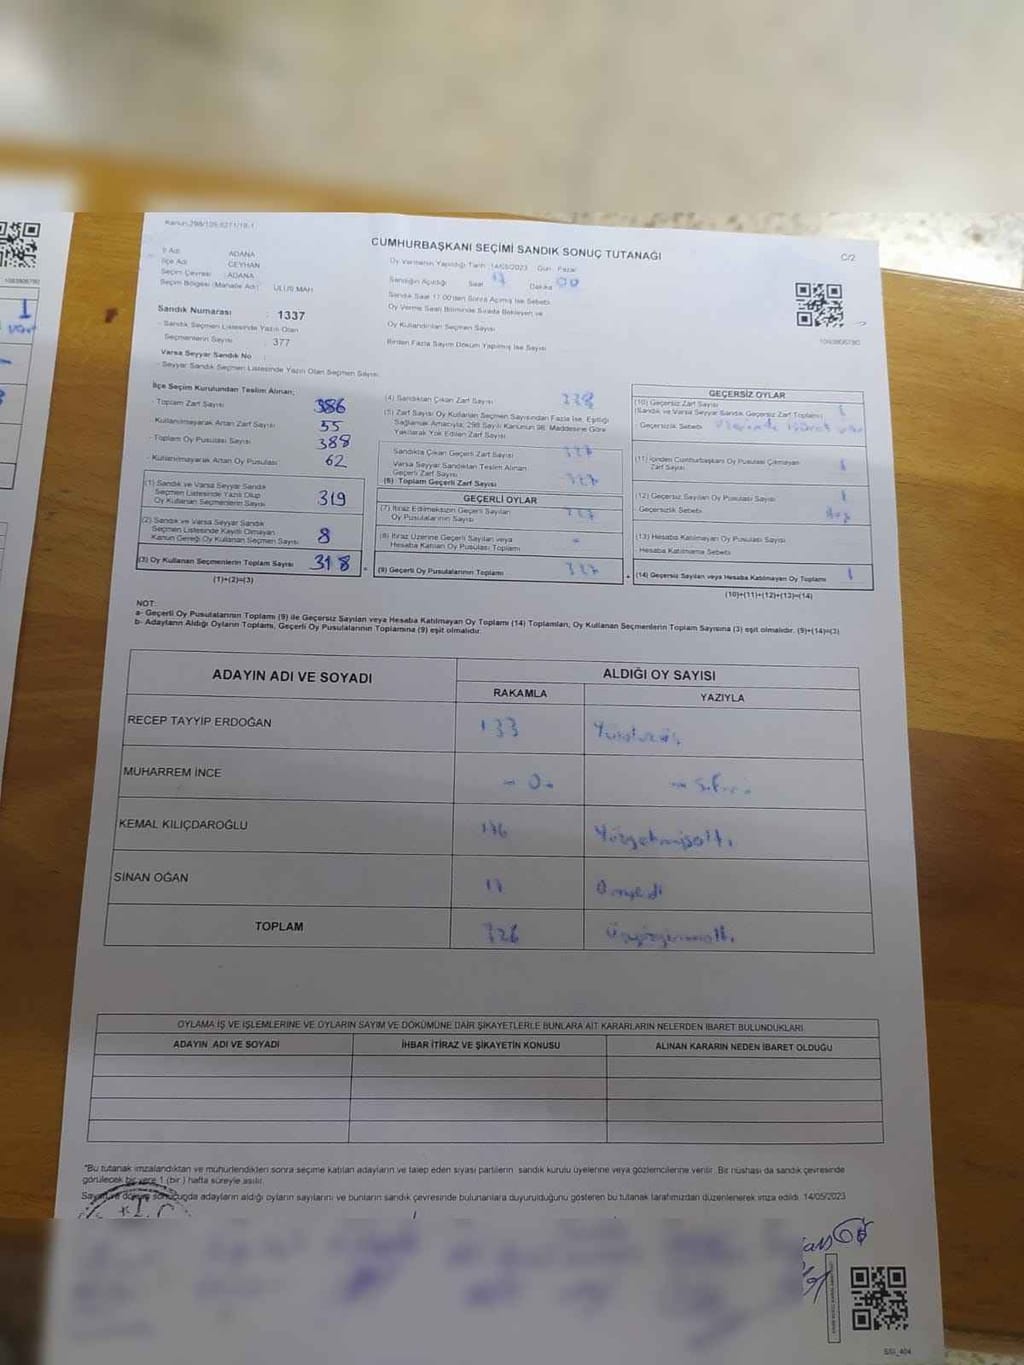 Kanun:298/105-6271/18-1
CUMHURBAŞKANI SEÇİMİ SANDIK SONUÇ TUTANAĞI
C/2
İl Adı ADANA
İlçe Adı CEYHAN
Seçim Çevresi ADANA
Seçim Bölgesi (Mahalle Adı) ULUS MAH
Oy Vermenin Yapıldığı Tarih :14/05/2023 Gün: Pazar
Sandığın Açıldığı Saat 17 Dakika 00
Sandık Saat 17:00'den Sonra Açılmış İse Sebebi
Oy Verme Saati Bitiminde Sırada Bekleyen ve
Oy Kullandırılan Seçmen Sayısı
Birden Fazla Sayım Döküm Yapılmış İse Sayısı
1093806780
Sandık Numarası : 1337
- Sandık Seçmen Listesinde Yazılı Olan
Seçmenlerin Sayısı : 377
Varsa Seyyar Sandık No :
- Seyyar Sandık Seçmen Listesinde Yazılı Olan Seçmen Sayısı:
İlçe Seçim Kurulundan Teslim Alınan;
- Toplam Zarf Sayısı 386
Kullanılmayarak Artan Zarf Sayısı 55
- Toplam Oy Pusulası Sayısı 388
- Kullanılmayarak Artan Oy Pusulası 62
(1) Sandık ve Varsa Seyyar Sandık
Seçmen Listesinde Yazılı Olup
Oy Kullanan Seçmenlerin Sayısı 319
(2) Sandık ve Varsa Seyyar Sandık
Seçmen Listesinde Kayıtlı Olmayan
Kanun Gereği Oy Kullanan Seçmen Sayısı 8
(3) Oy Kullanan Seçmenlerin Toplam Sayısı 318
(1)+(2)=(3)
(4) Sandıktan Çıkan Zarf Sayısı 328
(5) Zarf Sayısı Oy Kullanan Seçmen Sayısından Fazla İse, Eşitliği
Sağlamak Amacıyla; 298 Sayılı Kanunun 98. Maddesine Göre
Yakılarak Yok Edilen Zarf Sayısı
Sandıkta Çıkan Geçerli Zarf Sayısı 327
Varsa Seyyar Sandıktan Teslim Alınan
Geçerli Zarf Sayısı
(6) Toplam Geçerli Zarf Sayısı 327
GEÇERLİ OYLAR
(7) İtiraz Edilmeksizin Geçerli Sayılan
Oy Pusulalarının Sayısı 327
(8) İtiraz Üzerine Geçerli Sayılan veya
Hesaba Katılan Oy Pusulası Toplamı -
(9) Geçerli Oy Pusulalarının Toplamı 327
GEÇERSİZ OYLAR
(10) Geçersiz Zarf Sayısı
(Sandık ve Varsa Seyyar Sandık Geçersiz Zarf Toplamı) 1
- Geçersizlik Sebebi
(11) İçinden Cumhurbaşkanı Oy Pusulası Çıkmayan
Zarf Sayısı
(12) Geçersiz Sayılan Oy Pusulası Sayısı 1
Geçersizlik Sebebi
(13) Hesaba Katılmayan Oy Pusulası Sayısı
Hesaba Katılmama Sebebi
(14) Geçersiz Sayılan veya Hesaba Katılmayan Oy Toplamı 1
(10)+(11)+(12)+(13)=(14)
NOT:
a- Geçerli Oy Pusulalarının Toplamı (9) ile Geçersiz Sayılan veya Hesaba Katılmayan Oy Toplamı (14) Toplamları, Oy Kullanan Seçmenlerin Toplam Sayısına (3) eşit olmalıdır. (9)+(14)=(3)
b- Adayların Aldığı Oyların Toplamı, Geçerli Oy Pusulalarının Toplamına (9) eşit olmalıdır.
ADAYIN ADI VE SOYADI
ALDIĞI OY SAYISI
RAKAMLA
YAZIYLA
RECEP TAYYİP ERDOĞAN 133
MUHARREM İNCE - 0 - - Sıfır -
KEMAL KILIÇDAROĞLU 176 Yüzyetmişaltı
SİNAN OĞAN 17 Onyedi
TOPLAM 326 Üçyüzyirmialtı
OYLAMA İŞ VE İŞLEMLERİNE VE OYLARIN SAYIM VE DÖKÜMÜNE DAİR ŞİKAYETLERLE BUNLARA AİT KARARLARIN NELERDEN İBARET BULUNDUKLARI
ADAYIN ADI VE SOYADI
İHBAR İTİRAZ VE ŞİKAYETİN KONUSU
ALINAN KARARIN NEDEN İBARET OLDUĞU
*Bu tutanak imzalandıktan ve mühürlendikten sonra seçime katılan adayların ve talep eden siyasi partilerin sandık kurulu üyelerine veya gözlemcilerine verilir. Bir nüshası da sandık çevresinde
görülecek bir yere 1 (bir) hafta süreyle asılır.
Sayım ve döküm sonucunda adayların aldığı oyların sayılarını ve bunların sandık çevresinde bulunanlara duyurulduğunu gösteren bu tutanak tarafımızdan düzenlenerek imza edildi. 14/05/2023
T.C.
SSI_404